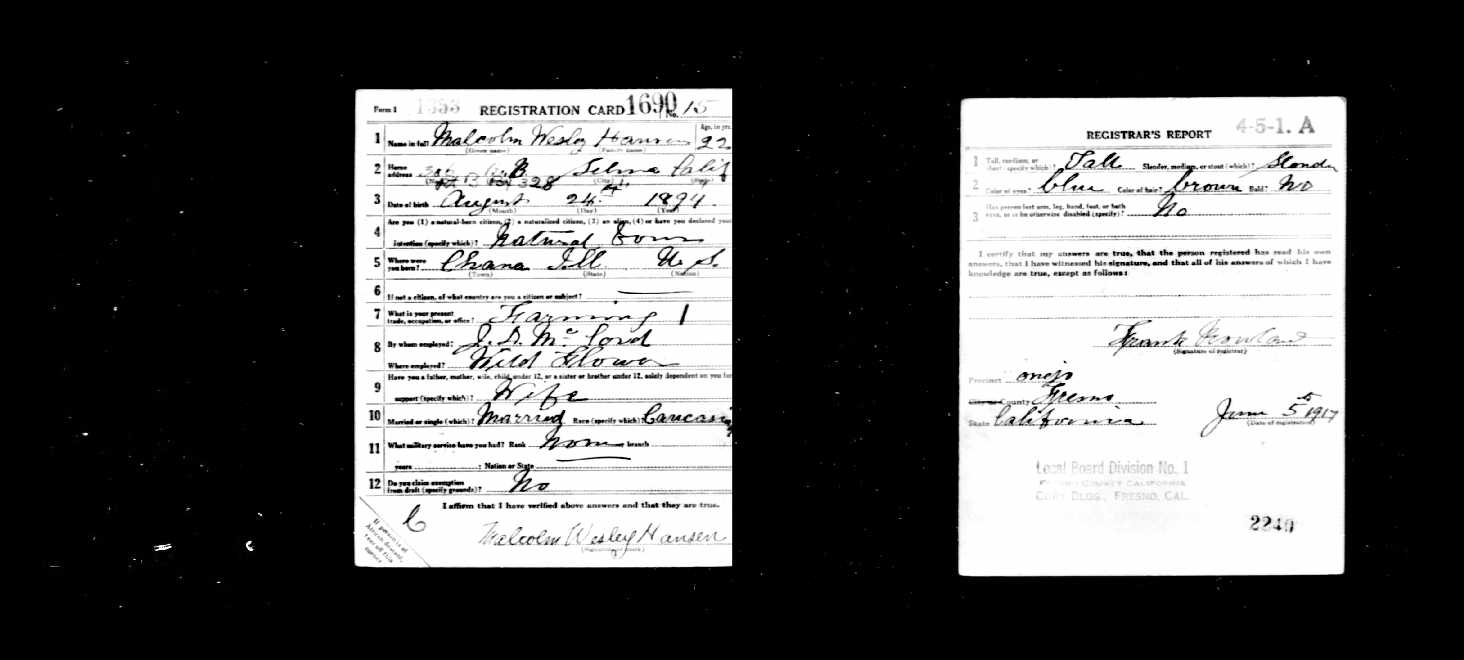 Form 1 1353 REGISTRATION CARD 1690 No. 15
1 Name in full Malcolm Wesley Hansen Age, in yrs. 22
(Given name) (Family name)
2 Home address B 328 Selma Calif
(No.) (City) (State)
3 Date of birth August 24 1894
(Month) (Day) (Year)
4 Are you (1) a natural-born citizen, (2) a naturalized citizen, (3) an alien, (4) or have you declared your
intention (specify which)? Natural born
5 Where were you born? Chana Ill U.S.
(Town) (State) (Nation)
6 If not a citizen, of what country are you a citizen or subject?
7 What is your present trade, occupation, or office? Farming 1
8 By whom employed? J. D. McCord
Where employed? Wild Flower
9 Have you a father, mother, wife, child under 12, or a sister or brother under 12, solely dependent on you for
support (specify which)? Wife
10 Married or single (which)? Married Race (specify which)? Caucasi
11 What military service have you had? Rank None branch
years ; Nation or State
12 Do you claim exemption from draft (specify grounds)? No
I affirm that I have verified above answers and that they are true.
Malcolm Wesley Hansen
If person is of African descent, tear off this corner
REGISTRAR'S REPORT 4-5-1. A
1 Tall, medium, or short (specify which)? Tall Slender, medium, or stout (which)? Slender
2 Color of eyes? blue Color of hair? brown Bald? No
3 Has person lost arm, leg, hand, foot, or both eyes, or is he otherwise disabled (specify)? No
I certify that my answers are true, that the person registered has read his own
answers, that I have witnessed his signature, and that all of his answers of which I have
knowledge are true, except as follows:
Frank Rowland
(Signature of registrar)
Precinct
City or County Fresno
State California June 5th 1917
(Date of registration)
Local Board Division No. 1
FRESNO COUNTY CALIFORNIA
BLDG., FRESNO, CAL.
2240